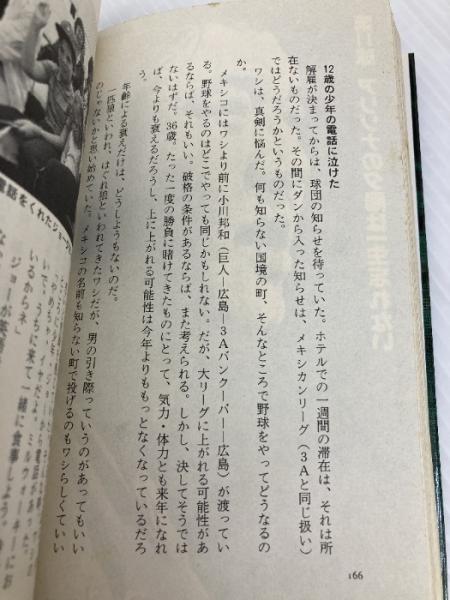 12歳の少年の電話に泣けた
解雇が決まってからは、球団の知らせを待っていた。ホテルでの一週間の滞在は、それは所
在ないものだった。その間にダンから入った知らせは、メキシカンリーグ（3Aと同じ扱い）
ではどうだろうかというものだった。
ワシは、真剣に悩んだ。何も知らない国境の町、そんなところで野球をやってどうなるの
か。
メキシコにはワシより前に小川邦和（巨人―広島―3Aバンクーバー―広島）が渡ってい
る。野球をやるのはどこでやっても同じかもしれない。だが、大リーグに上がれる可能性があ
るならば、それもいい。破格の条件があるならば、また考えられる。しかし、決してそうでは
ないはずだ。36歳。たった一度の勝負に賭けてきたものにとって、気力・体力とも来年になれ
ば、今よりも衰えるだろうし、上に上がれる可能性は今年よりももっとなくなっているだろ
う。
年齢による衰えだけは、どうしようもないのだ。
一匹狼といわれ、はぐれ狼といわれてきたワシだが、男の引き際っていうのがあってもいい
のじゃないかと思い始めていた。メキシコの名前も知らない町で投げるのもワシらしくていい
166
電話をくれたジョー
うちに来て一緒に食事しよう。
いるからネ」